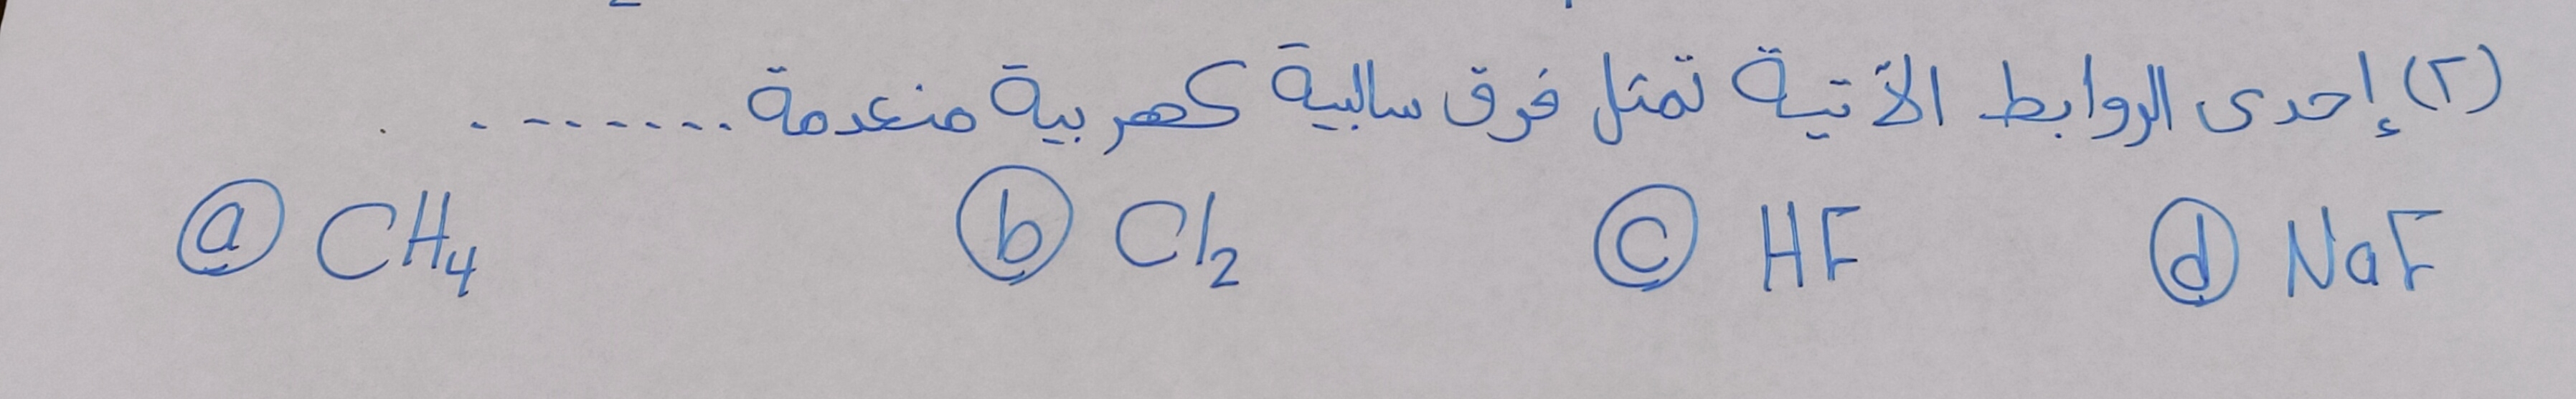 (٢) إحدى الروابط الآتية تمثل فرق سالبية كهربية منعدمة ........
ⓐ CH₄ ⓑ Cl₂ ⓒ HF ⓓ NaF